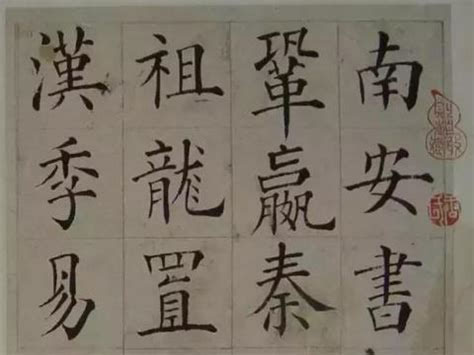 南安書
鞏嬴秦
祖龍置
漢季易